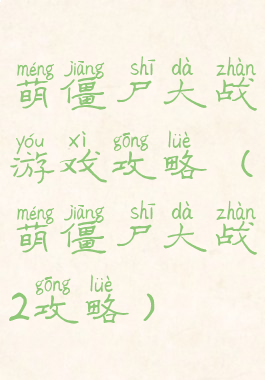 méng jiāng shī dà zhàn
萌僵尸大战
yóu xì gōng lüè
游戏攻略（
méng jiāng shī dà zhàn
萌僵尸大战
gōng lüè
2攻略）